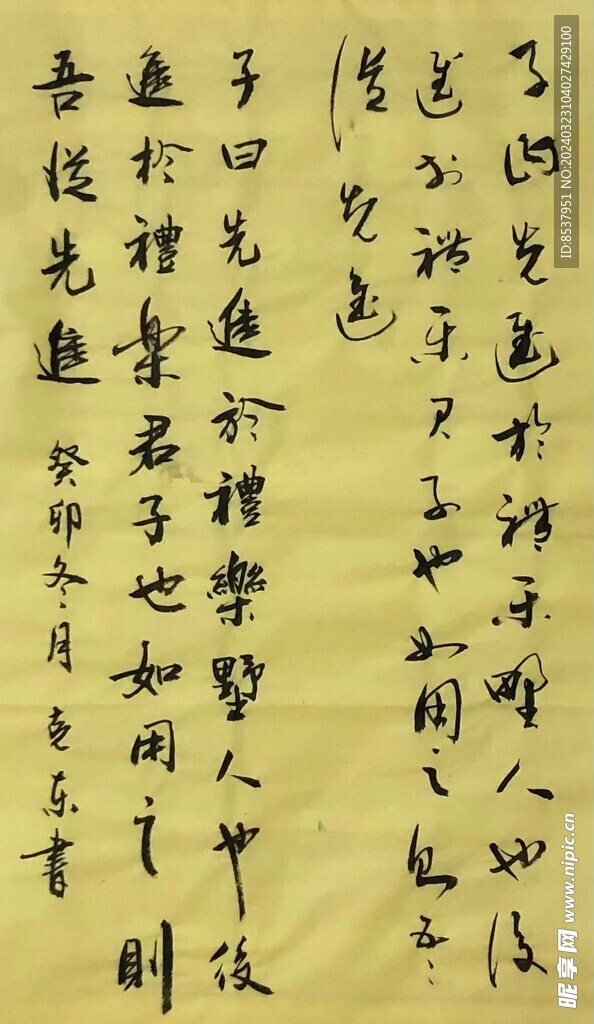 子曰先進於禮樂野人也後
進於禮樂君子也如用之則吾
從先進
子曰先進於禮樂墅人也後
進於禮樂君子也如用之則
吾從先進 癸卯冬月 克东書
ID:8537951 NO:20240323104027429100
昵享网 www.nipic.cn